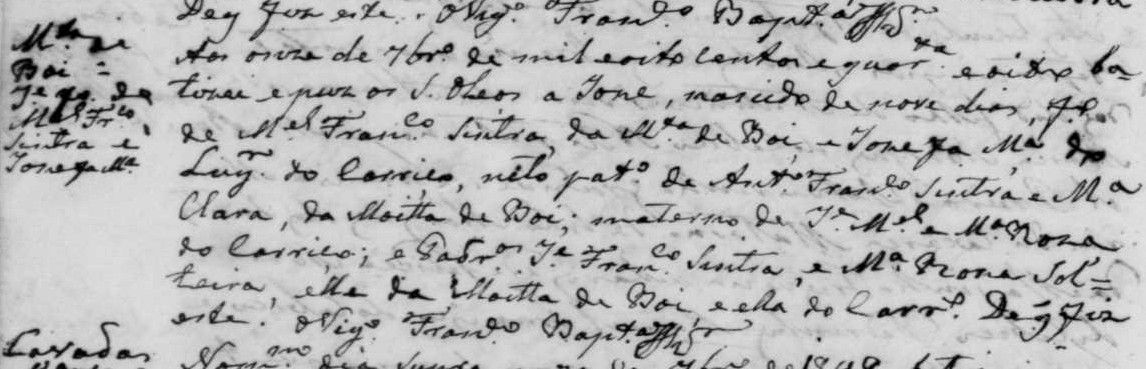 Deq̃ fiz este. O Vigº. Franᶜº Baptᵃ
Mᵗᵃ de
Boi =
Jᵉ fº. de
Mᵉˡ Frᶜº
Sintra e
Josefa Mᵃ.
Aos onze de 7brº. de mil e oito centos e quarᵗᵃ e oito ba-
tizei e puz os S. Oleos a Jose, nascido de nove dias, fº.
de Mᵉˡ Franᶜº Sintra, da Mᵗᵃ de Boi, e Josefa Mᵃ. do
Lugʳ. do Carriço, neto patº. de Antº. Franᶜº Sintra e Mᵃ.
Clara, da Moitta de Boi; materno de Jᵉ Mᵉˡ e Mᵃ Roza
do Carriço; e Padrᵒˢ Jᵉ Franᶜº Sintra, e Mᵃ. Roza Sol=
teira, elle da Moitta de Boi, e ella do Carrᶜº. Deq̃ fiz
este. O Vigº. Franᶜº Baptᵃ
Cavadas
dia 7brº de 1848